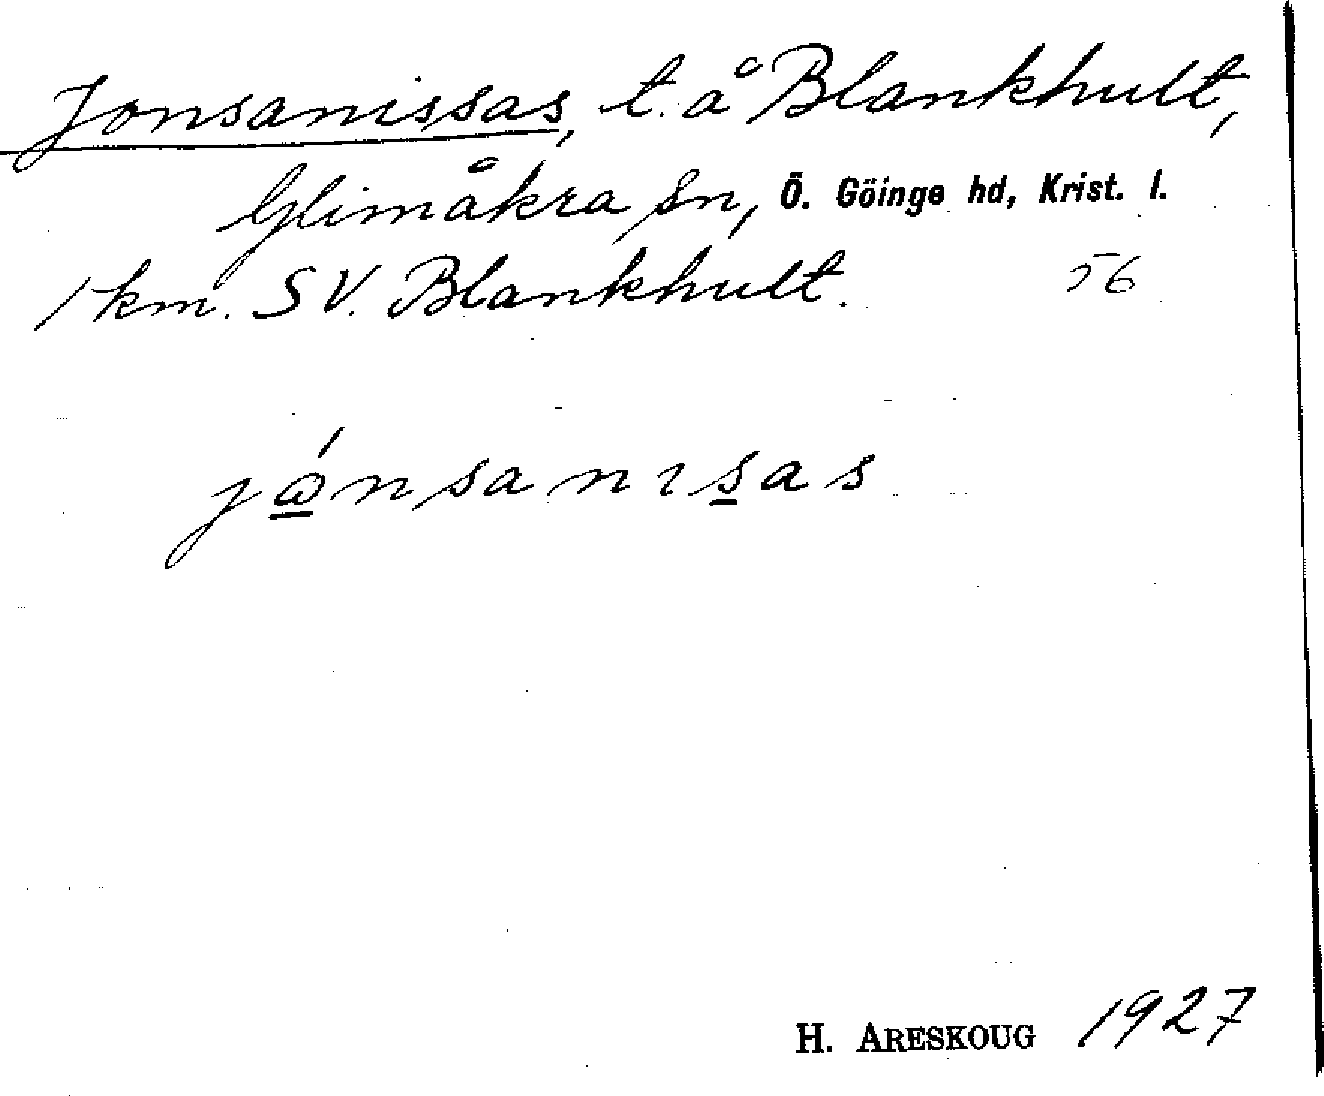 Jonsanissas, t. å Blankhult,
Glimåkra sn, Ö. Göinge hd, Krist. l.
1 km. SV. Blankhult. 56
jώnsanısas
H. ARESKOUG 1927